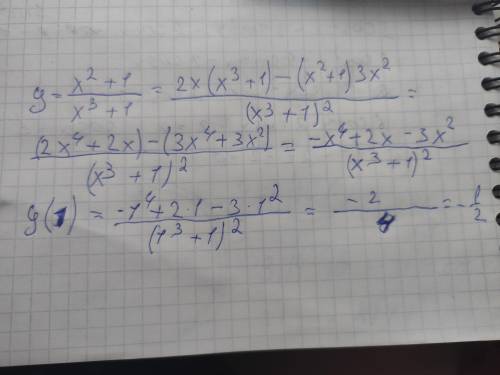 y = \frac{x^2+1}{x^3+1} = \frac{2x(x^3+1)-(x^2+1)3x^2}{(x^3+1)^2} =
\frac{(2x^4+2x)-(3x^4+3x^2)}{(x^3+1)^2} = \frac{-x^4+2x-3x^2}{(x^3+1)^2}
y(1) = \frac{-1^4+2·1-3·1^2}{(1^3+1)^2} = \frac{-2}{4} = -\frac{1}{2}